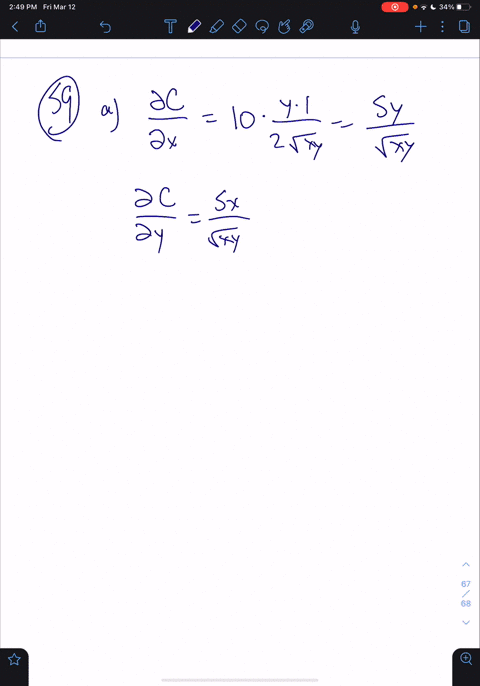 2:49 PM Fri Mar 12
34%
59 a) ∂C/∂x = 10 · y·1/2√xy = 5y/√xy
∂C/∂y = 5x/√xy
67
/
68